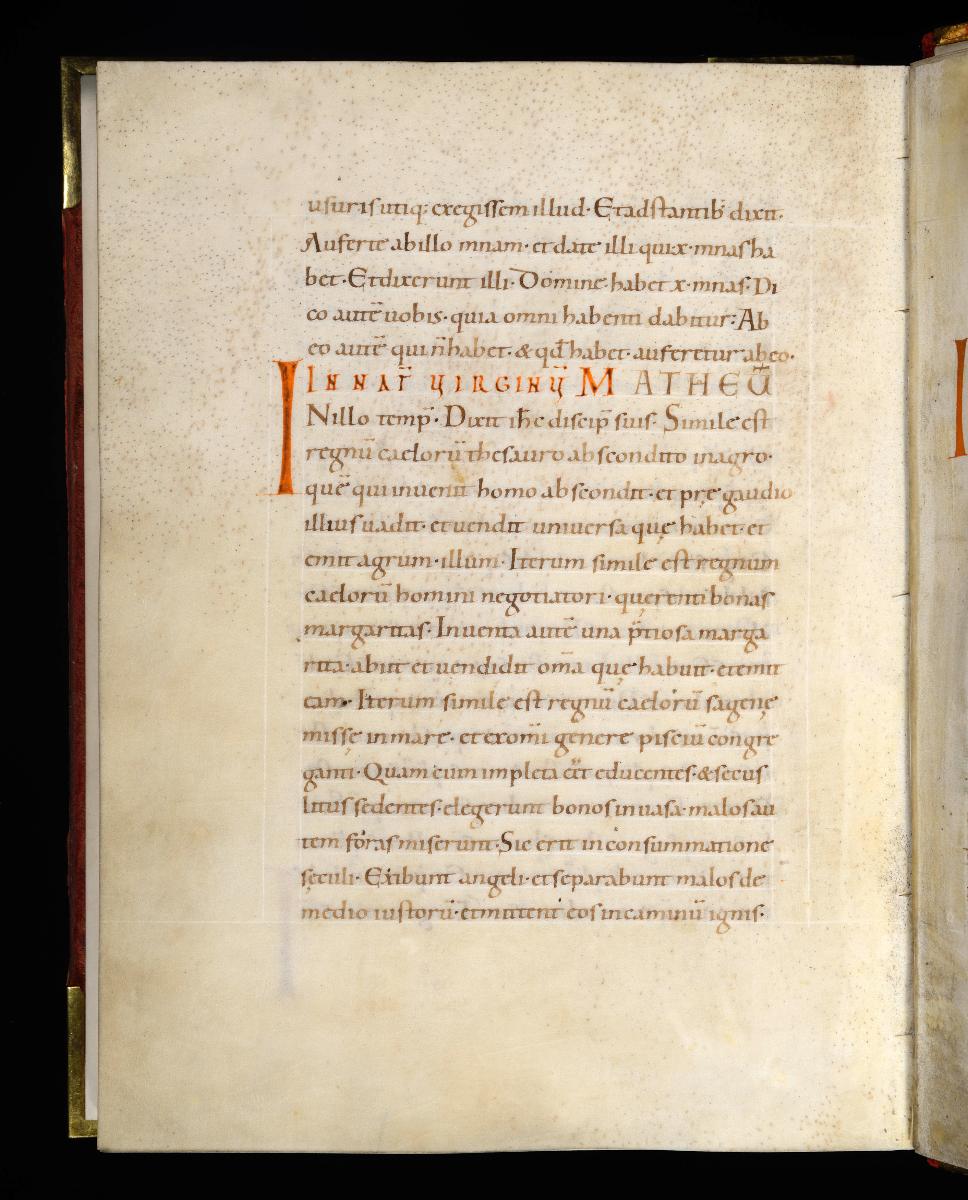 usuris utiq; exegissem illud· Et adstantib' dixit·
Auferte ab illo mnam· et date illi qui·x·mnas ha
bet· Et dixerunt illi· Domine habet x· mnas· Di
co autē uobis· quia omni habenti dabitur: Ab
eo autē qui n̄ habet· & qđ habet· auferetur ab eo·
IN NAT̄ VIRGINŪ MATHEŪ
IN illo temp̄· Dixit ih̄c discip̄ suis· Simile est
regnū caelorū thesauro abscondito in agro·
quē qui inuenit homo abscondit· et pre gaudio
illius uadit· et uendit uniuersa quę habet· et
emit agrum· illum· Iterum simile est regnum
caelorū homini negotiatori· querenti bonas
margaritas· Inuenta autē una p̄tiosa marga
rita· abiit et uendidit om̄a quę habuit· et emit
eam· Iterum simile est regnū caelorū sagenę
missę in mare· et ex om̄i genere pisciū congre
ganti· Quam cum impleta eēt educentes· & secus
litus sedentes· elegerunt bonos in uasa· malos au
tem foras miserunt· Sic erit in consummatione
sęculi· Exibunt angeli· et separabunt malos de
medio iustorū· et mittent eos in caminū ignis·